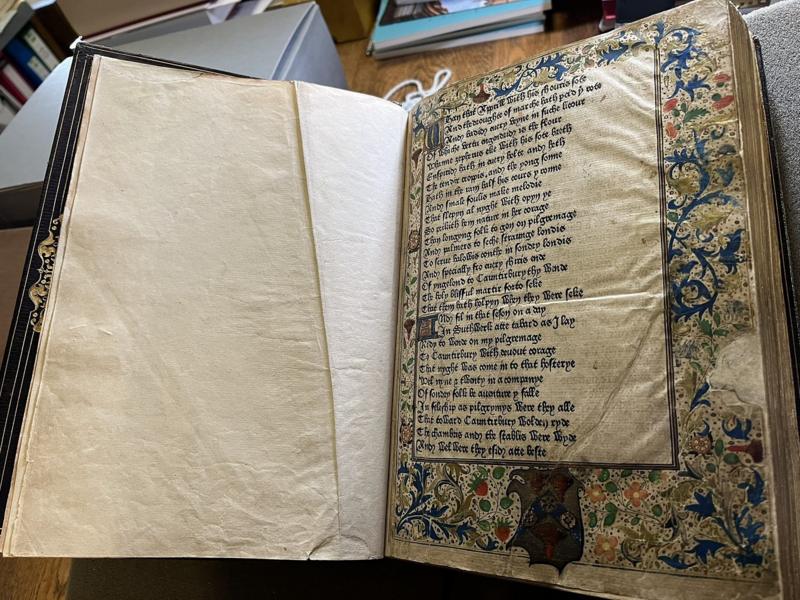 Whan that Apprill with his shouris sote
And the droughte of marche hath percid þe rote
And badid euery veyne in suche licour
Of whiche vertu engendrid is the flour
Whanne zepherus eke with his sote breth
Enspirid hath in euery holte and heth
The tendir croppis, and the yong sonne
Hath in the ram half his cours y ronne
And smale foulis make melodie
That slepyn al nyght with opyn ye
So prikith hem nature in her corage
Than longyng folk to gon on pilgremage
And palmers to seche straunge londis
To serue halowis couthe in sondry londis
And specially fro euery shiris ende
Of yngelond to Cauntirbury thy wende
The holy blisful martir forto seke
That them hath holpyn when they were seke
And fil in that seson on a day
In Suthwerk atte tabard as I lay
Redy to wende on my pilgremage
To Cauntirbury with deuout corage
That nyght was come in to that hosterye
Wel nyne & twenty in a companye
Of sondry folk be auenture y falle
In feliship as pilgrymys were they alle
That toward Cauntirbury wolden ryde
The chambris and the stablis were wyde
And wel were they esid atte beste